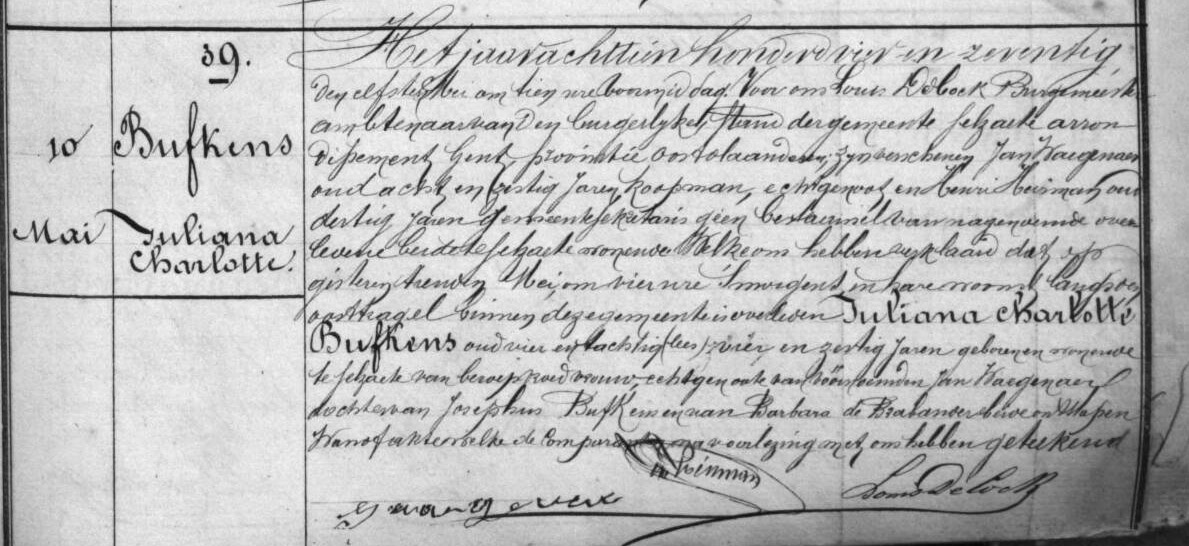 39.
10
Mai
Bufkens
Juliana
Charlotte.
Het jaar achttien honderd vier en zeventig
den elfsten Mei om tien ure voormiddag Voor ons Louis De Cock Burgemeester
ambtenaar van den burgerlyken stand der gemeente Selzaete arron
dissement Gent, provintie Oostvlaanderen; zyn verschenen Jan Waegenaer
oud acht en zestig Jaren koopman, echtgenoot en Henri Heirman, oud
dertig Jaren Gemeentesekretaris geen bestaemsel van nagenoemde over
ledene beide te Selzaete wonende Welke ons hebben verklaard dat op
gisteren tienden Mei, om vier ure smorgens, in hare woonst langs
binnen deze gemeente is overleden Juliana Charlotte
Bufkens oud vier en tachtig (lees) vier en zestig Jaren geboren en wonende
te Selzaete van beroep vrouw, echtgenoote van voornoemden Jan Waegenaer
dochter van Josephus Bufkens en van Barbara de Brabander
Waarof akte welke de Comparanten na voorlezing met ons hebben geteekend
Heirman
Louis De Cock